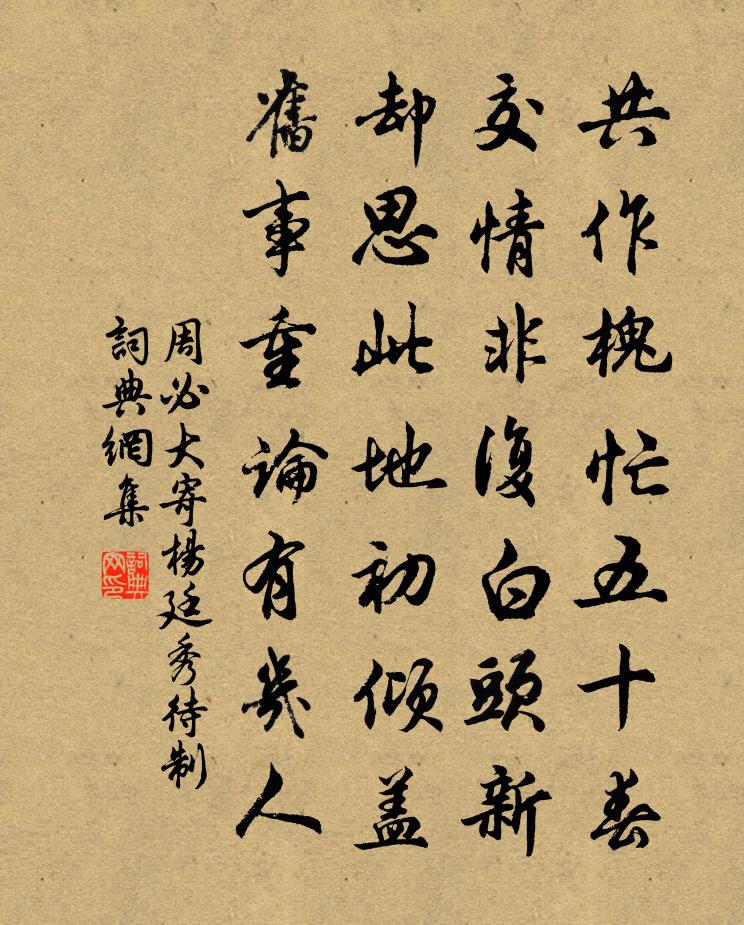 共作槐忙五十春
交情非復白頭新
却思此地初傾盖
舊事重論有幾人
周必大寄楊廷秀待制
詞典網集
詞典網印